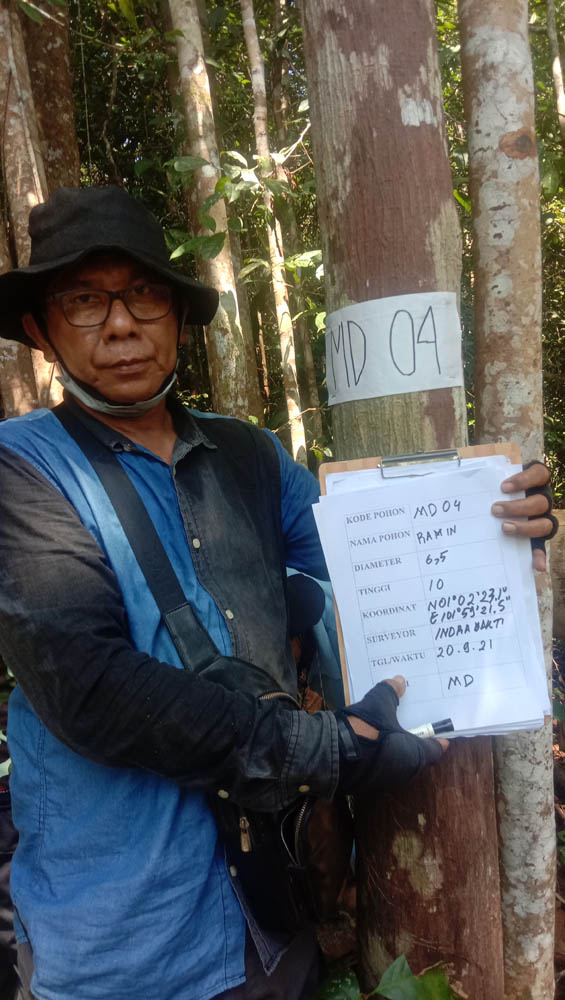 MD 04
KODE POHON MD 04
NAMA POHON RAMIN
DIAMETER 6,5
TINGGI 10
KOORDINAT N01°02'23.1"
E101°59'21.5"
SURVEYOR INDRA BAKTI
TGL/WAKTU 20.9.21
MD